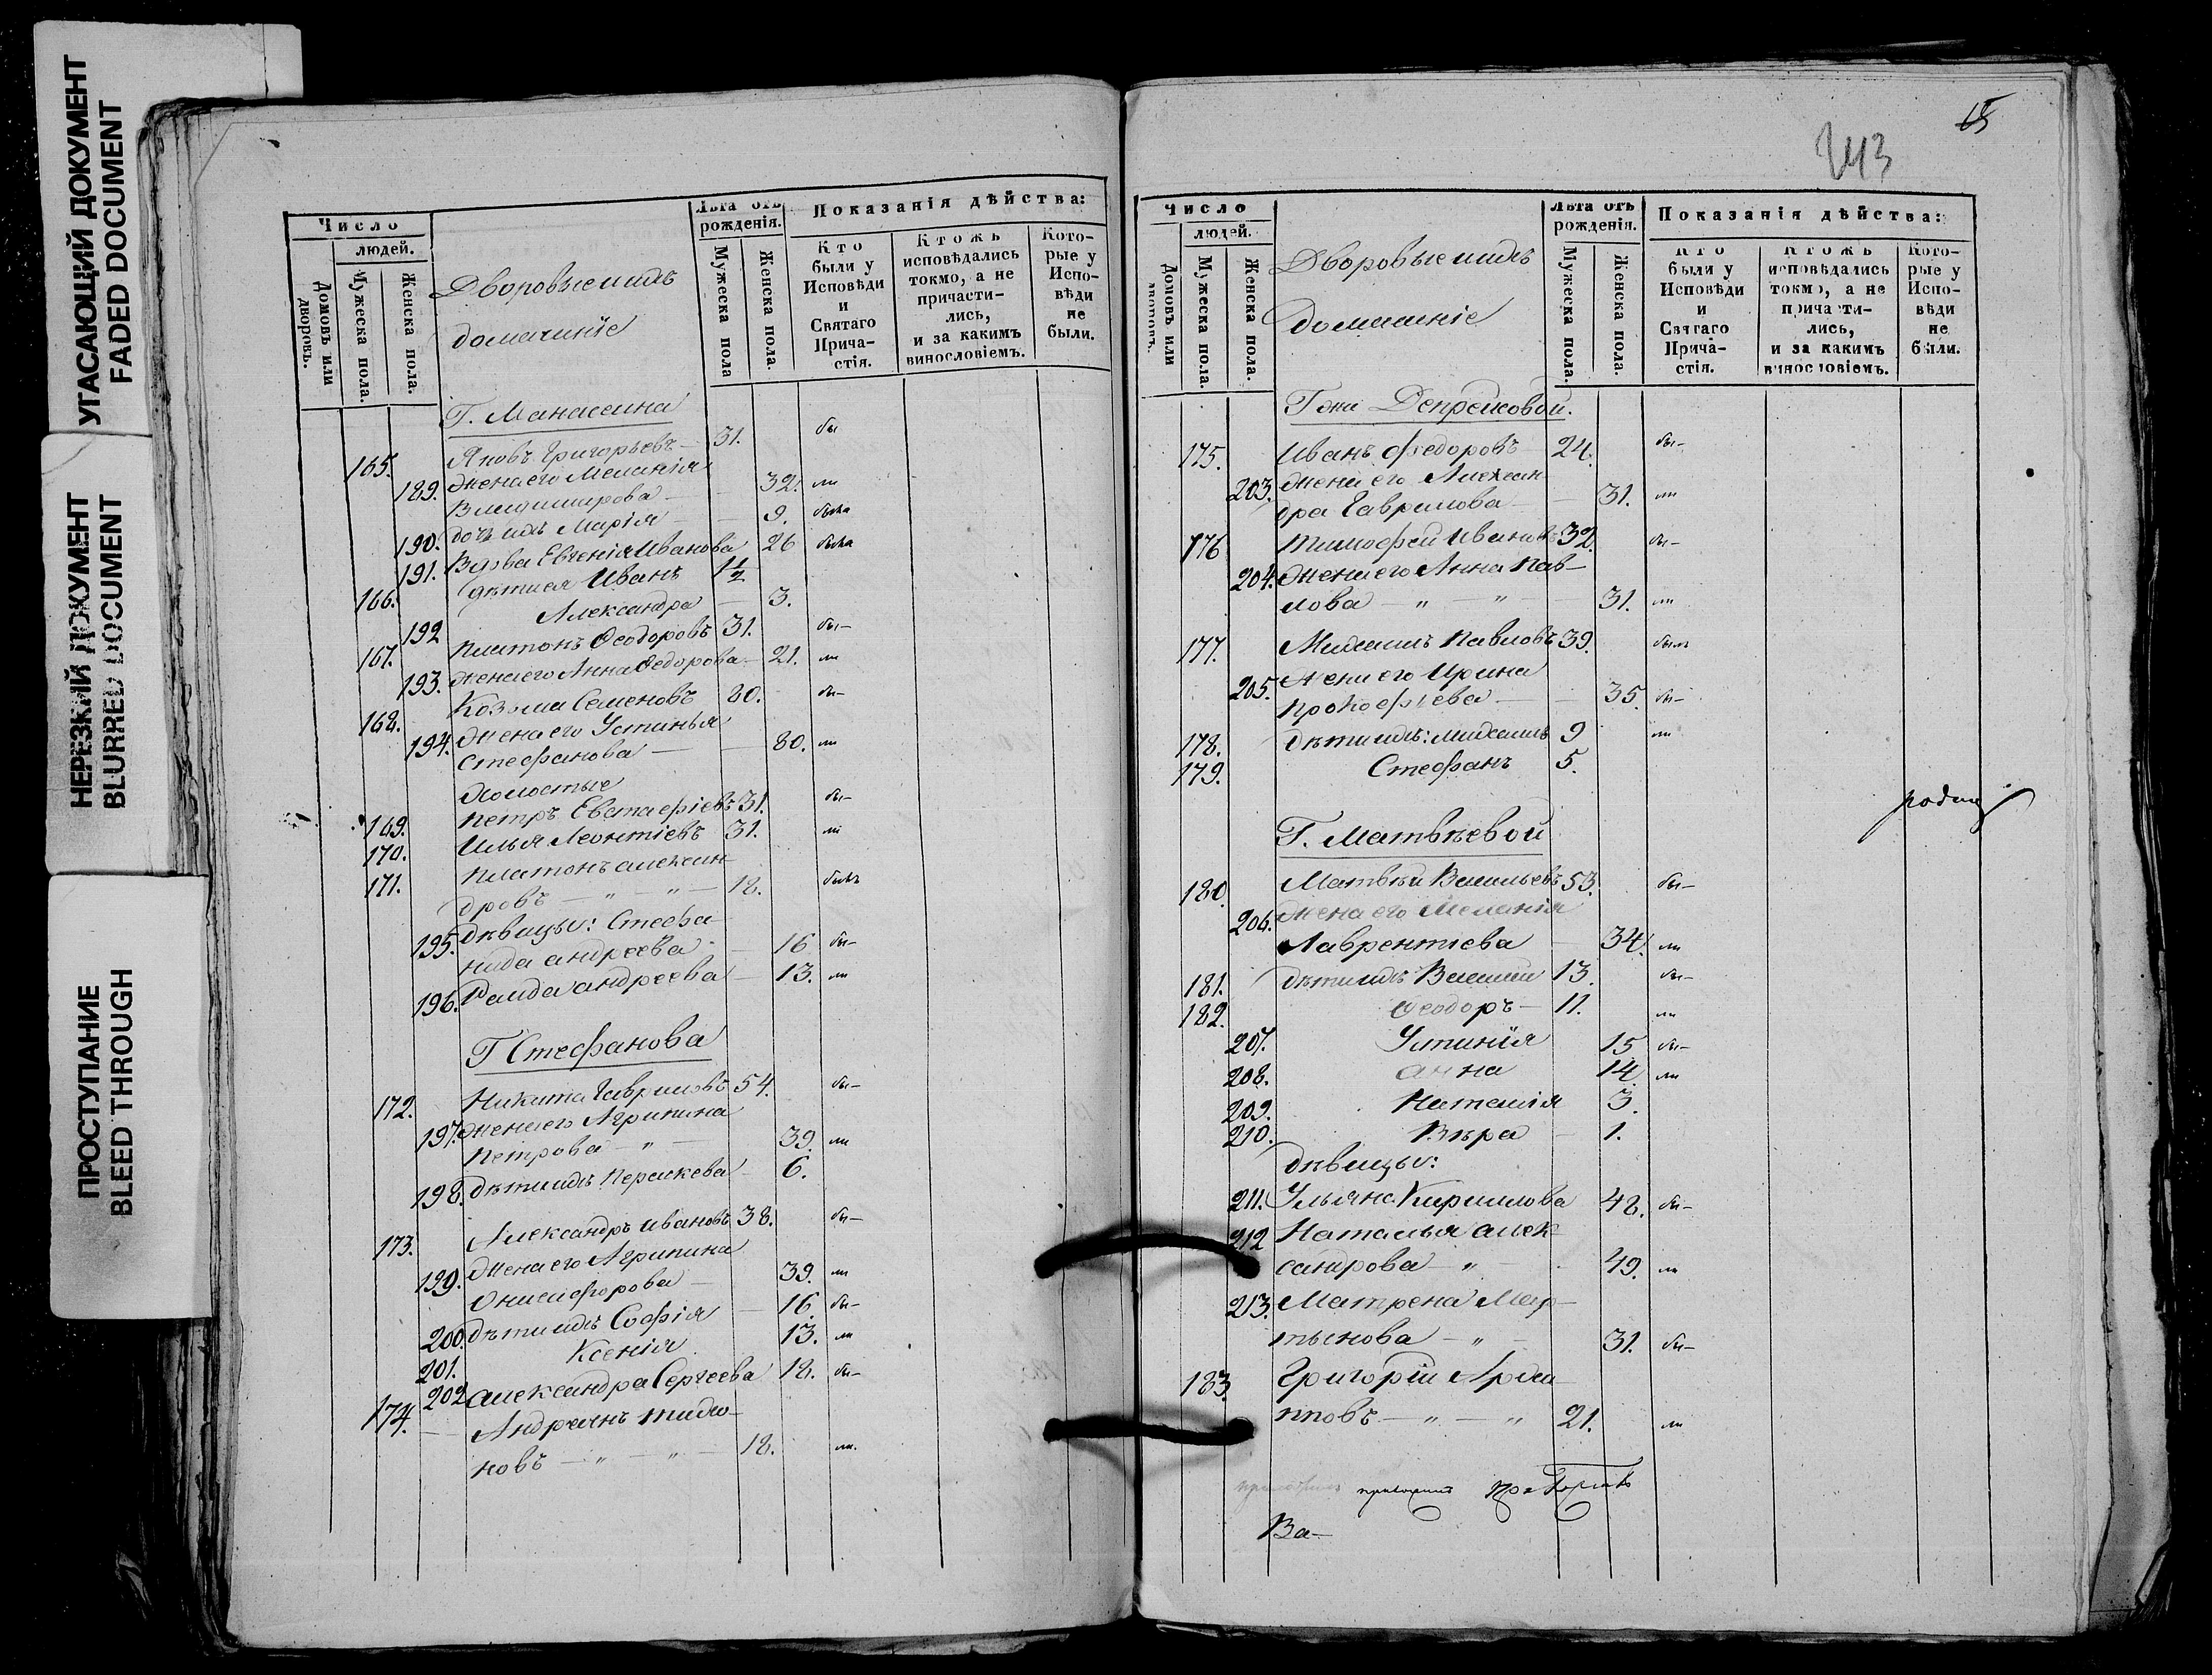 УГАСАЮЩИЙ ДОКУМЕНТ
FADED DOCUMENT
НЕРЕЗКИЙ ДОКУМЕНТ
BLURRED DOCUMENT
ПРОСТУПАНИЕ
BLEED THROUGH
Число
людей.
Домовъ или дворовъ.
Мужеска пола.
Женска пола.
Дворовые ихъ
домашніе
Лѣта отъ
рожденія.
Мужеска пола
Женска пола.
Показанія дѣйства:
Кто
были у
Исповѣди
и
Святаго
Прича-
стія.
Ктожъ
исповѣдались
токмо, а не
причасти-
лись,
и за какимъ
винословіемъ.
Кото-
рые у
Испо-
вѣди
не
были.
Г. Манасеина
165. Яковъ Григорьевъ 31. бы
189. жена его Меланія
Владимирова 32. ли
190. дочь ихъ Марія 9. была
191. Вдова Евгенія Иванова 26 была
166. дѣти ея Иванъ 1 1/2
192 Александра 3.
167. Платонъ Ѳеодоровъ 31. бы-
193. жена его Анна Ѳедорова 21. ли
168. Козьма Семеновъ 80. бы-
194. Жена его Устинья
Стефанова 80. ли
Холостые
169. Петръ Евстафіевъ 31. бы-
170. Илья Леонтіевъ 31. ли
171. Платонъ Алексан-
дровъ — " — " — 18. былъ
195. дѣвицы: Стефа-
нида Андреева 16 бы-
196. Андреева 13. ли
Г Стефанова
172. Никита Гавриловъ 54. бы-
197. жена его Агрипина
Петрова — " — 39. ли
198. дѣти ихъ Параскева 6.
173. Александръ Ивановъ 38. бы-
199. Жена его Агрипина
Онисифорова 39. ли
200. дѣти ихъ Софія 16 бы-
201. Ксенія 13. ли
202 Александра Сергеева 18. бы-
174. Андреянъ Тихо-
новъ — " — " — 18. ли.
243
Число
людей.
Домовъ или дворовъ.
Мужеска пола.
Женска пола.
Дворовые ихъ
домашніе
Лѣта отъ
рожденія.
Мужеска пола.
Женска пола.
Показанія дѣйства:
Кто
были у
Исповѣди
и
Святаго
Прича-
стія.
Ктожъ
исповѣдались
токмо, а не
причасти-
лись,
и за какимъ
винословіемъ.
Кото-
рые у
Испо-
вѣди
не
были.
Г жи Депрейсовой.
175. Иванъ Федоровъ 24. бы-
203. жена его Алексан-
дра Гаврилова 31. ли
176 Тимофей Ивановъ 32. бы-
204. Жена его Анна Пав-
лова — " — " — 31. ли
177. Михаилъ Павловъ 39. былъ
205. Жена его Ирина
Прокофіева 35. бы-
178. дѣти ихъ: Михаилъ 9 ли
179. Стефанъ 5.
Г. Матвѣевой
180. Матвѣй Васильевъ 53. бы-
206. Жена его Меланія
Лаврентіева 34. ли
181. дѣти ихъ Василій 13. бы-
182. Ѳеодоръ — 11. ли
207. Устинія 15 бы-
208. Анна 14. ли
209. Наталія 3.
210. Вѣра — 1.
дѣвицы:
211. Ульяна Кириллова 48. бы-
212 Наталья Алек-
сандрова — " — 49. ли
213. Матрена Мар-
тынова — " — 31. бы-
183. Григорій Архи-
пповъ — " — " 21. ли
Ва-